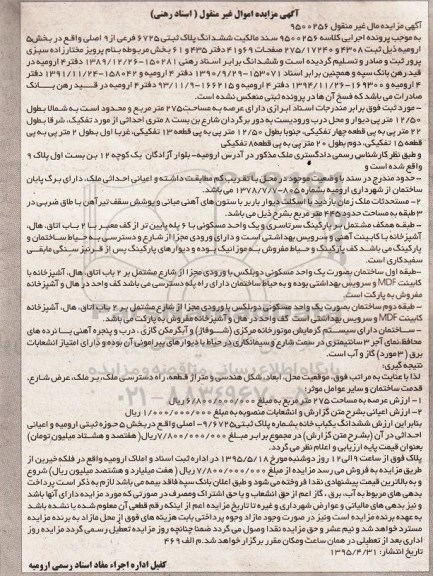 آگهی مزایده اموال غیر منقول ( اسناد رهنی)
آگهی مزایده مال غیر منقول ۹۵۰۰۲۵۶
به موجب پرونده اجرایی کلاسه ۹۵۰۰۲۵۶ سند مالکیت ششدانگ پلاک ثبتی ۶۷۲۵ فرعی از ۹ اصلی واقع در بخش۵
ارومیه ذیل ثبت ۴۳۰۸ و ۲۷۵/۱۷۲۴۰ صفحات ۶۹ و ۴۱ دفتر ۴۳۵ و ۶۱ بخش مربوطه بنام پرویز مختارزاده سبزی
پرور ثبت و صادر و تسلیم گردیده است و ششدانگ برابر اسناد رهنی ۱۵۰۲۸۱-۱۳۸۹/۱۲/۲۶ دفتر ۴ ارومیه در
قید رهن بانک سپه و همچنین برابر اسناد ۱۵۳۰۷۱-۱۳۹۰/۹/۲۹ دفتر ۴ ارومیه و ۱۵۸۰۴۲-۱۳۹۱/۱۱/۲۴ دفتر
۴ ارومیه و ۱۶۹۳۰۰-۱۳۹۴/۱۱/۲۶ دفتر ۴ ارومیه و ۱۶۶۲۱۵-۹۳/۱۱/۹ دفتر ۴ ارومیه در قید رهن بانک
صادرات می باشد که فسخ آن ها در پرونده ثبتی منعکس نشده است.
– مورد ثبت فوق برابر مندرجات اسناد ابرازی دارای عرصه به مساحت ۲۷۵ متر مربع و محدود است به شمالا بطول
۱۲/۵۰ متر پی دیوار و محل درب ورودیست به دور برگردان شارع بن بست ۸ متری احداثی از مورد تفکیک، شرقا بطول
۲۲ متر پی به پی قطعه چهار تفکیکی، جنوبا بطول ۱۲/۵۰ متر پی به پی قطعه ۱۳ تفکیکی، غربا اول بطول ۲ متر پی به پی
قطعه ۱۵ تفکیکی، دوم بطول ۲۰ متر پی به پی قطعه۸ تفکیکی
و طبق نظر کارشناس رسمی دادگستری ملک مذکور در آدرس ارومیه- بلوار آزادگان یک کوچه ۱۲ بن بست اول پلاک ۹
واقع شده است و
– حدود مندرج در سند با وضعیت موجود در محل با تقریب کم مطابقت داشته و اعیانی احداثی ملک، دارای برگ پایان
ساختمان از شهرداری ارومیه بشماره ۸۰۵-۱۳۷۸/۷/۷ می باشد.
۲- مستحدثات ملک زمان بازدید با اسکلت دیوار باربر با ستون های آهنی میانی و پوشش سقف تیر آهن با طاق ضربی در
۳ طبقه به مساحت حدود ۴۴۵ متر مربع بشرح ذیل می باشد.
– طبقه همکف مشتمل بر پارکینگ سرتاسری و یک واحد مسکونی با ۶ پله پایین تر از کف معبر با ۲ باب اتاق، هال،
آشپزخانه با کابینت آهنی و سرویس بهداشتی است و دارای ورودی مجزا از شارع و دسترسی به حیاط ساختمان و
پارکینگ می باشد کف پارکینگ و حیاط مفروش به موزائیک بوده و دیوارهای پارکینگ پس از قرنیز سنگی مابقی
سفیدکاری است.
– طبقه اول ساختمان بصورت یک واحد مسکونی دوبلکس با ورودی مجزا از شارع مشتمل بر ۲ باب اتاق، هال، آشپزخانه با
کابینت MDF و سرویس بهداشتی بوده و به حیاط ساختمان دارای راه پله دسترسی می باشد کف واحد در هال و آشپزخانه
مفروش به پارکت است.
– طبقه دوم ساختمان بصورت یک واحد مسکونی دوبلکس با ورودی مجزا از شارع مشتمل بر ۲ باب اتاق، هال، آشپزخانه
کابینت MDF و سرویس بهداشتی است کف واحد در هال و آشپزخانه مفروش به پارکت می باشد.
– ساختمان دارای سیستم گرمایش موتورخانه مرکزی (شوفاژ) و آبگرمکن گازی ، درب و پنجره آهنی با نرده های
محافظ،نمای آجر ۳ سانتیمتری در سمت شارع و سیمانکاری در حیاط با دیوارهای پیرامونی آن بوده و دارای امتیاز انشعابات
برق (۳ مورد) گاز و آب است.
نتیجه گیری:
لذا با عنایت به مراتب فوق، موقعیت محل، ابعاد، شکل هندسی و متراژ قطعه، راه دسترسی ملک،بر ملک، عرض شارع،
قدمت ساختمان و سایر عوامل موثر:
۱- ارزش عرصه به مساحت ۲۷۵ متر مربع به مبلغ ۶/۸۰۰/۰۰۰/۰۰۰ ریال
۲- ارزش اعیانی بشرح متن گزارش و انشعابات منصوبه به مبلغ ۱/۰۰۰/۰۰۰/۰۰۰ ریال
بنابر این ارزش ششدانگ یکباب خانه به شماره پلاک ثبتی ۹/۶۷۲۵- اصلی واقع در بخش ۵ حوزه ثبتی ارومیه و اعیانی
احداثی در آن (بشرح متن گزارش) در مجموع برابر مبلغ ۷/۸۰۰/۰۰۰/۰۰۰ ریال( هفتصد و هشتاد میلیون تومان)
بعنوان قیمت پایه ارزیابی و اعلام نظر می گردد.
پلاک فوق از ساعت ۹ الی ۱۲ روز دوشنبه مورخ ۱۳۹۵/۵/۱۸ در اداره ثبت اسناد و املاک ارومیه واقع در فلکه خیرین از
طریق مزایده به فروش می رسد مزایده از مبلغ ۷/۸۰۰/۰۰۰/۰۰۰ ریال ( هفت میلیارد و هشتصد میلیون ریال) شروع
و به بالاترین قیمت پیشنهادی نقدا فروخته می شود و طبق اعلان بانک سپه فاقد بیمه می باشد لازم به ذکر است پرداخت
بدهی های مربوط به آب، برق ، گاز اعم از حق انشعاب و یا حق اشتراک و مصرف در صورتی که مورد مزایده دارای آنها باشد
و نیز بدهی های مالیاتی و عوارض شهرداری و غیره تا تاریخ مزایده اعم از اینکه رقم قطعی آن معلوم شده یا نشده باشد
به عهده برنده مزایده است ونیز در صورت وجود مازاد وجوه پرداختی بابت هزینه های فوق از محل مازاد به برنده مزایده
مسترد خواهد شد و نیم عشر و حق مزایده نقدا وصول می گردد ضمنا چنانچه روز مزایده تعطیل رسمی گردد مزایده روز
اداری بعد از تعطیلی در همان ساعت ومکان مقرر برگزار خواهد شد.م الف ۴۶۹
تاریخ انتشار: ۱۳۹۵/۴/۳۱
کفیل اداره اجراء مفاد اسناد رسمی ارومیه